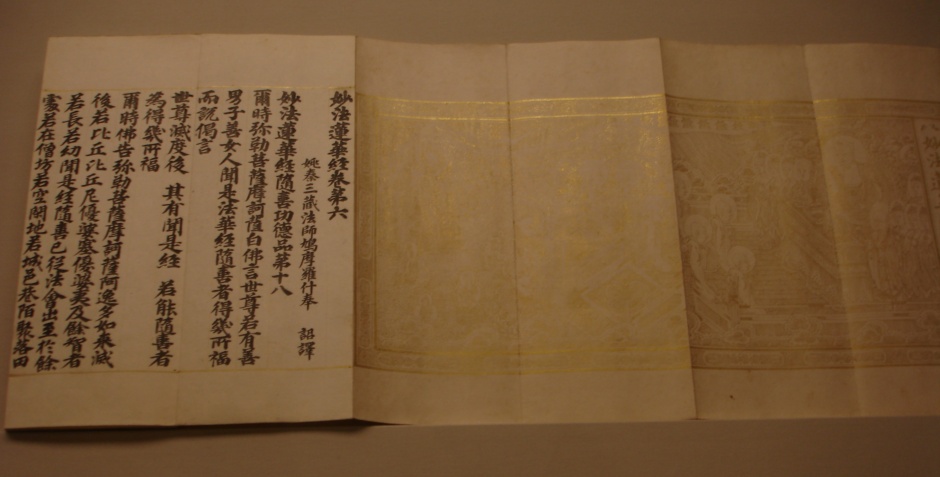 妙法蓮
妙法蓮華経卷第六
姚秦三藏法師鳩摩羅什奉 詔譯
妙法蓮華経隨喜功德品第十八
爾時弥勒菩薩摩訶薩白佛言世尊若有善
男子善女人聞是法華経隨喜者得幾所福
而說偈言
世尊滅度後 其有聞是経 若能隨喜者
為得幾所福
爾時佛告弥勒菩薩摩訶薩阿逸多如来滅
後若比丘比丘尼優婆塞優婆夷及餘智者
若長若幼聞是経隨喜已従法會出至於餘
處若在僧坊若空閑地若城邑巷陌聚落田